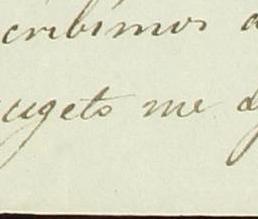 cribimos
sugeto me